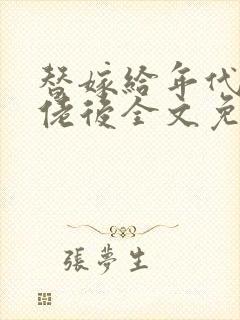 替嫁给年代
佬後全文免
張夢生